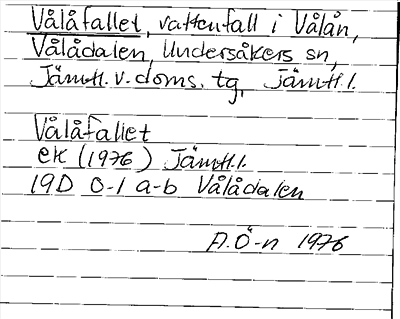 Vålåfallet, vattenfall i Vålån,
Vålådalen, Undersåkers sn,
Jämtl. v. doms. tg, Jämtl. l.
Vålåfallet
ek (1976) Jämtl. l.
19D 0-1 a-b Vålådalen
A. Ö-n 1976